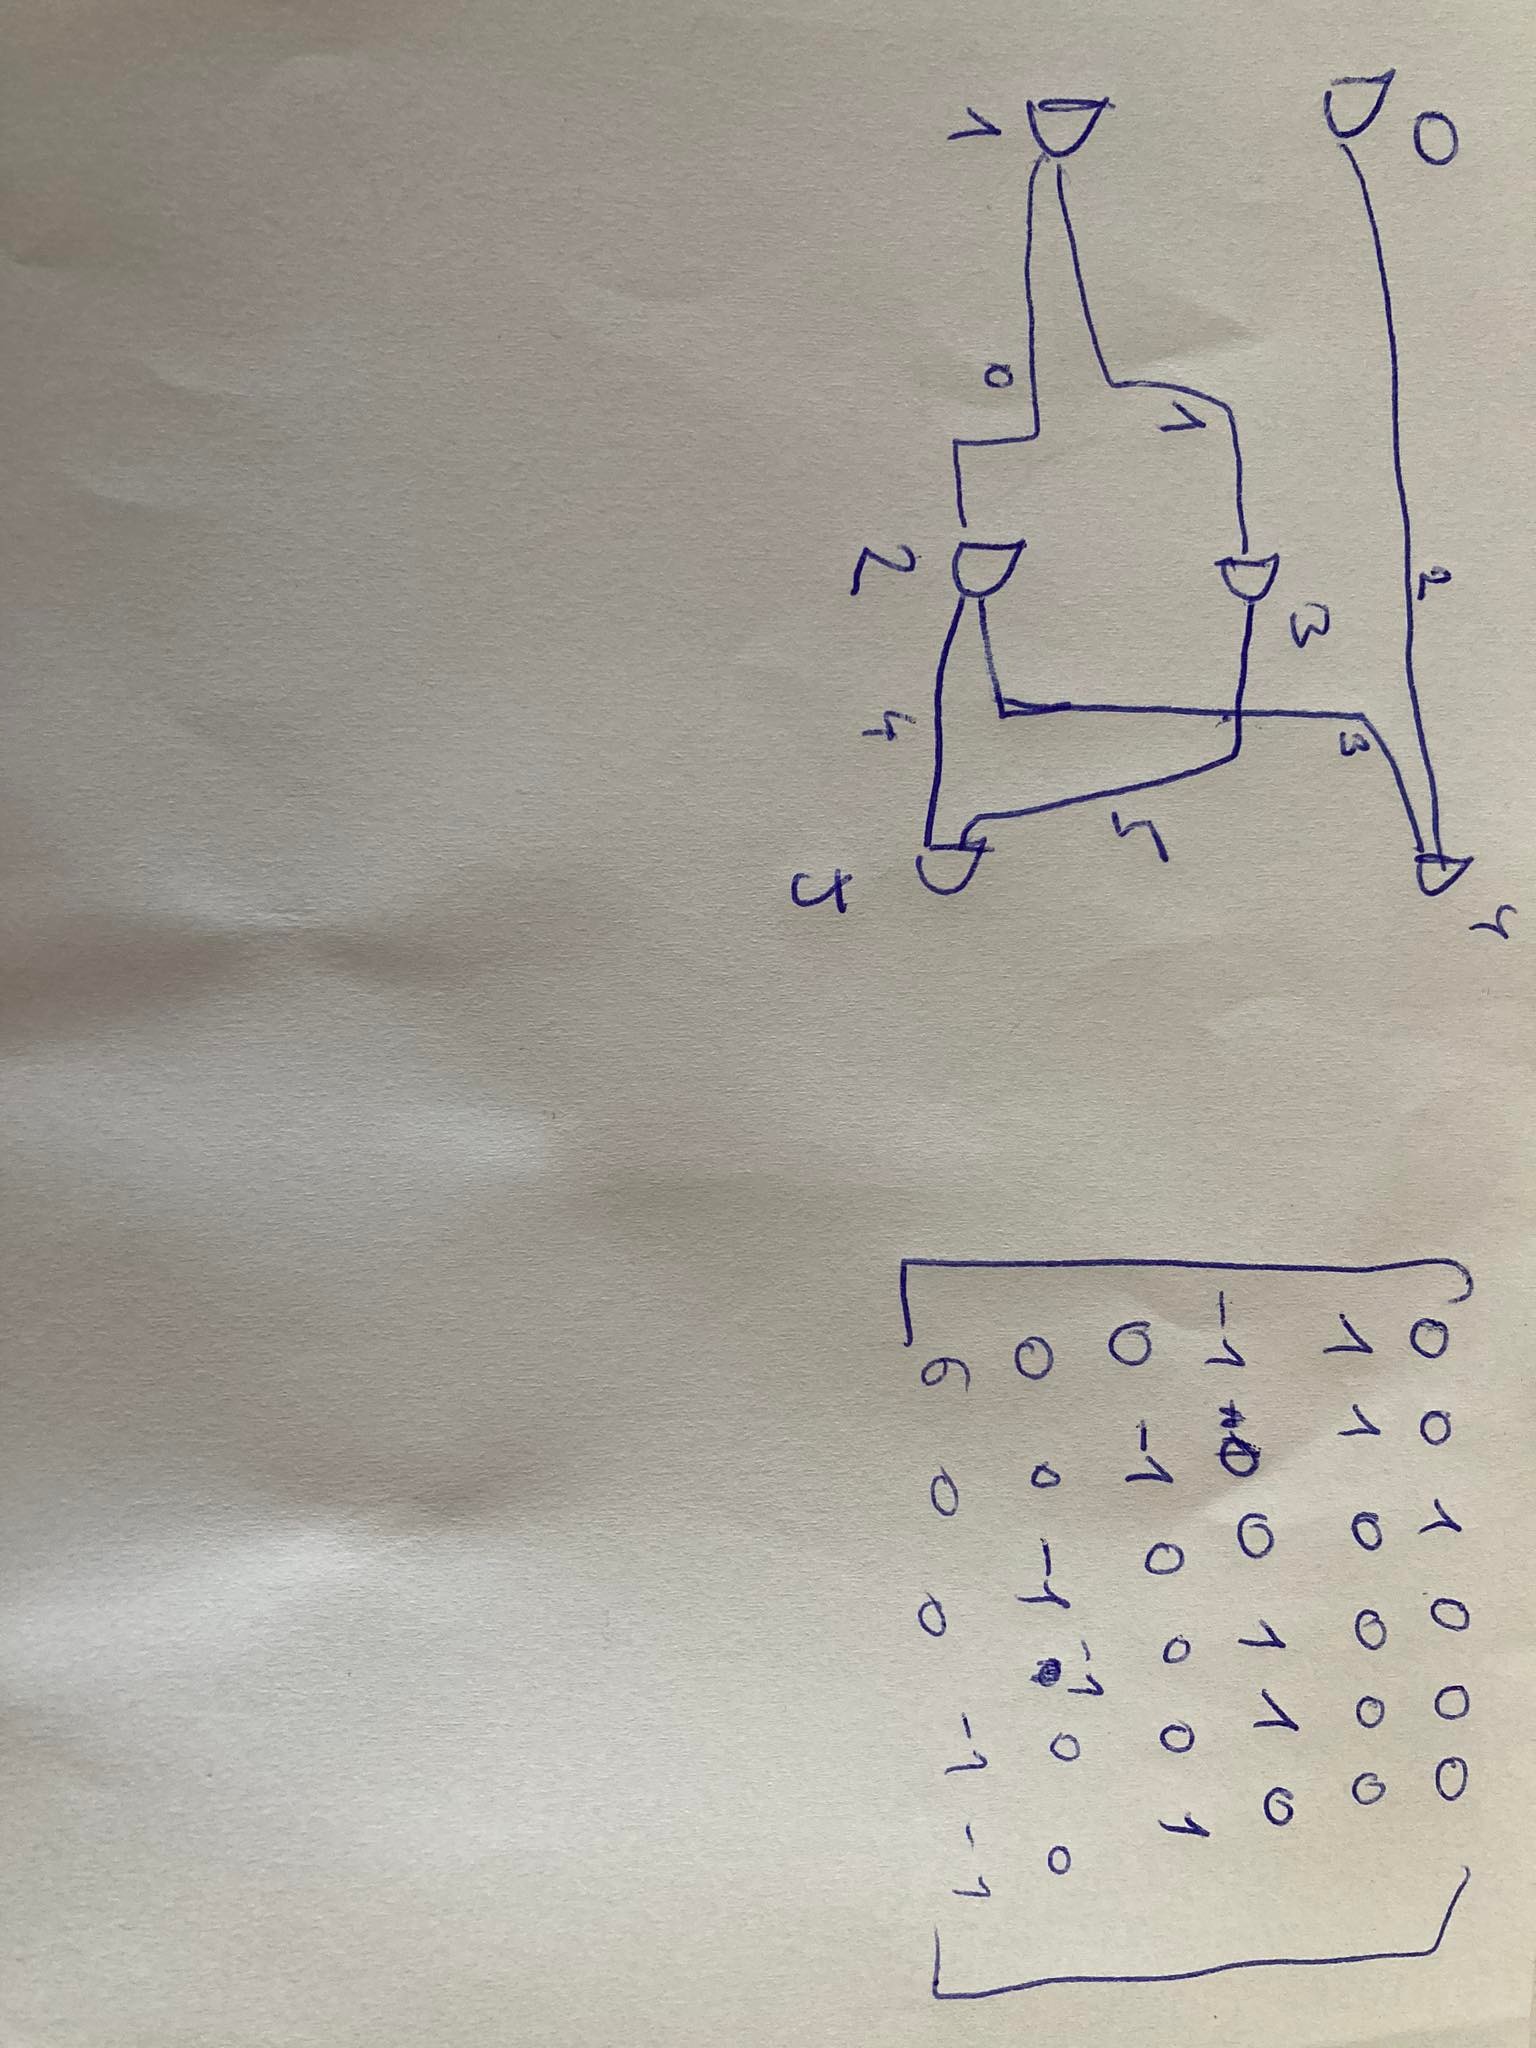 0
4
2
3
3
1
5
0
1
2
4
5
0 0 1 0 0 0
1 1 0 0 0 0
-1 0 0 1 1 0
0 -1 0 0 0 1
0 0 -1 -1 0 0
0 0 0 -1 -1